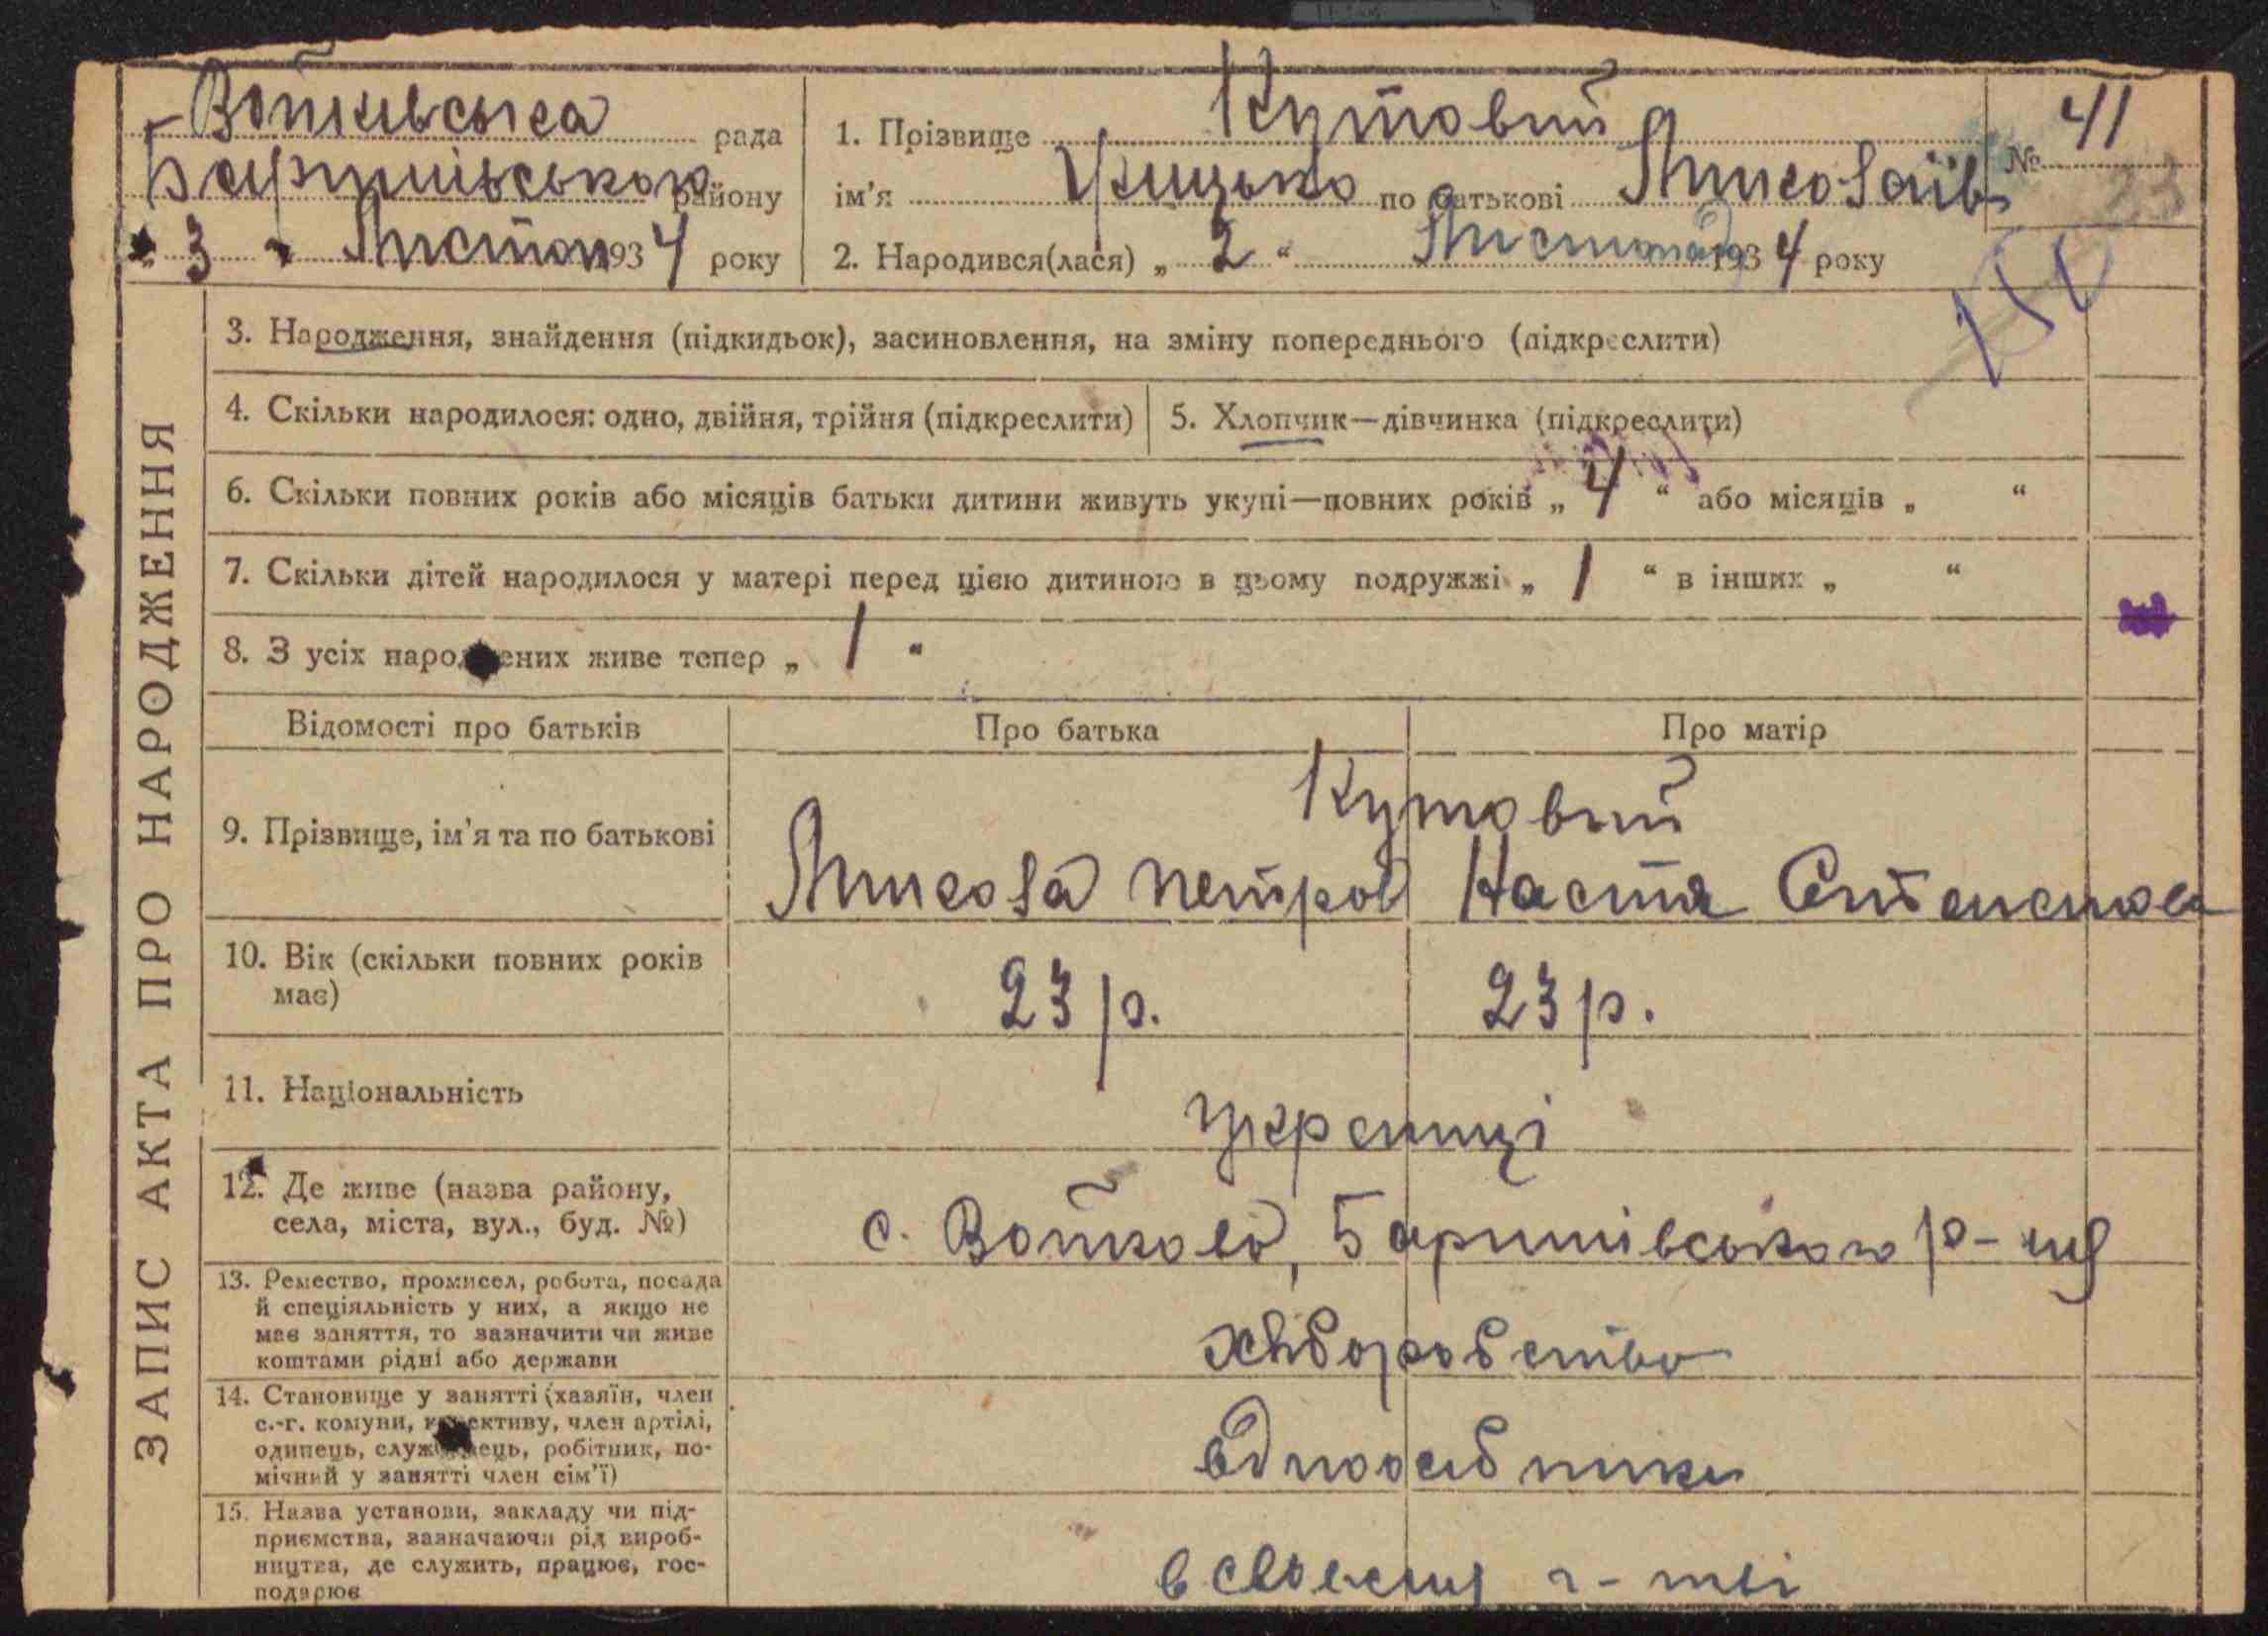 Войківська рада
Баришівського району
" 3 " Листоп 1934 року
1. Прізвище Кутовий
ім'я Грицько по батькові Миколаїв
2. Народився(лася) „ 2 “ Листопад 1934 року
№ 41
ЗАПИС АКТА ПРО НАРОДЖЕННЯ
3. Народження, знайдення (підкидьок), засиновлення, на зміну попереднього (підкреслити)
4. Скільки народилося: одно, двійня, трійня (підкреслити)
5. Хлопчик—дівчинка (підкреслити)
6. Скільки повних років або місяців батьки дитини живуть укупі—повних років „ 4 “ або місяців „ “
7. Скільки дітей народилося у матері перед цією дитиною в цьому подружжі „ 1 “ в інших „ “
8. З усіх народжених живе тепер „ 1 “
Відомості про батьків
Про батька
Про матір
9. Прізвище, ім'я та по батькові
Кутовий
Микола Петров
Настя
10. Вік (скільки повних років
має)
23 р.
23 р.
11. Національність
Українці
12. Де живе (назва району,
села, міста, вул., буд. №)
с. Войково, Баришівського р-ну
13. Ремество, промисел, робота, посада
й спеціяльність у них, а якщо не
має заняття, то зазначити чи живе
коштами рідні або держави
хліборобство
14. Становище у занятті (хазяїн, член
с.-г. комуни, колективу, член артілі,
одинець, службовець, робітник, по-
мічний у занятті член сім'ї)
одноосібники
15. Назва установи, закладу чи під-
приємства, зазначаючи рід вироб-
ництва, де служить, працює, гос-
подарює
в своєму г-тві